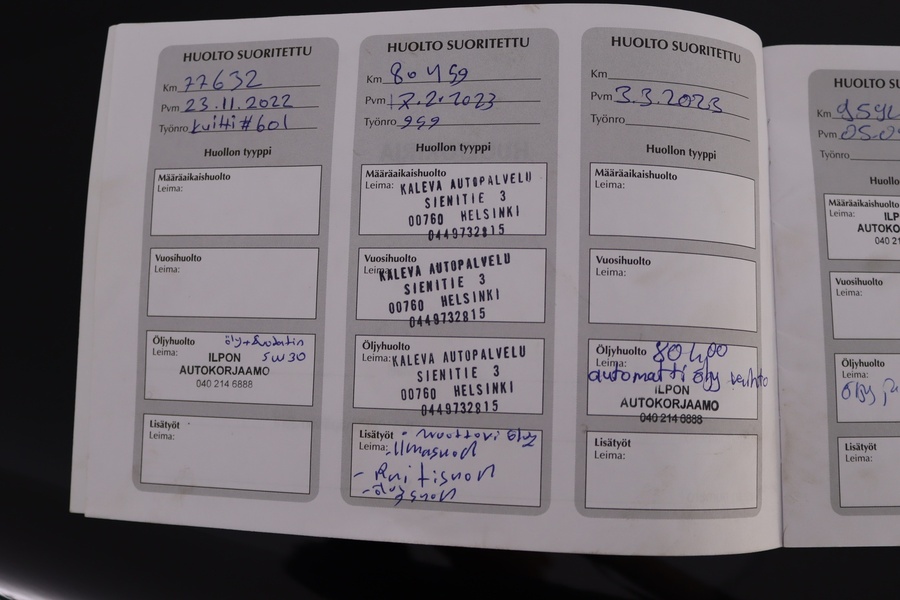 HUOLTO SUORITETTU
Km 77632
Pvm 23.11.2022
Työnro kuitti #601
Huollon tyyppi
Määräaikaishuolto
Leima:
Vuosihuolto
Leima:
Öljyhuolto öljy+suodatin
Leima: 5W30
ILPON
AUTOKORJAAMO
040 214 6888
Lisätyöt
Leima:
HUOLTO SUORITETTU
Km 80459
Pvm 17.2.2023
Työnro 999
Huollon tyyppi
Määräaikaishuolto
Leima: KALEVA AUTOPALVELU
SIENITIE 3
00760 HELSINKI
0449732815
Vuosihuolto
Leima: KALEVA AUTOPALVELU
SIENITIE 3
00760 HELSINKI
0449732815
Öljyhuolto
Leima: KALEVA AUTOPALVELU
SIENITIE 3
00760 HELSINKI
0449732815
Lisätyöt - moottori öljy
Leima: - Ilmasuod
- Raitisuod
- öljysuod
HUOLTO SUORITETTU
Km
Pvm 3.3.2023
Työnro
Huollon tyyppi
Määräaikaishuolto
Leima:
Vuosihuolto
Leima:
Öljyhuolto 80400
Leima:
automatti öljy vaihto
ILPON
AUTOKORJAAMO
040 214 6888
Lisätyöt
Leima:
HUOLTO SU
Km
Pvm
Työnro
Huollo
Määräaikaishuolto
Leima: ILP
AUTOKO
040 21
Vuosihuolto
Leima:
Öljyhuolto
Leima:
Öljy
Lisätyöt
Leima: